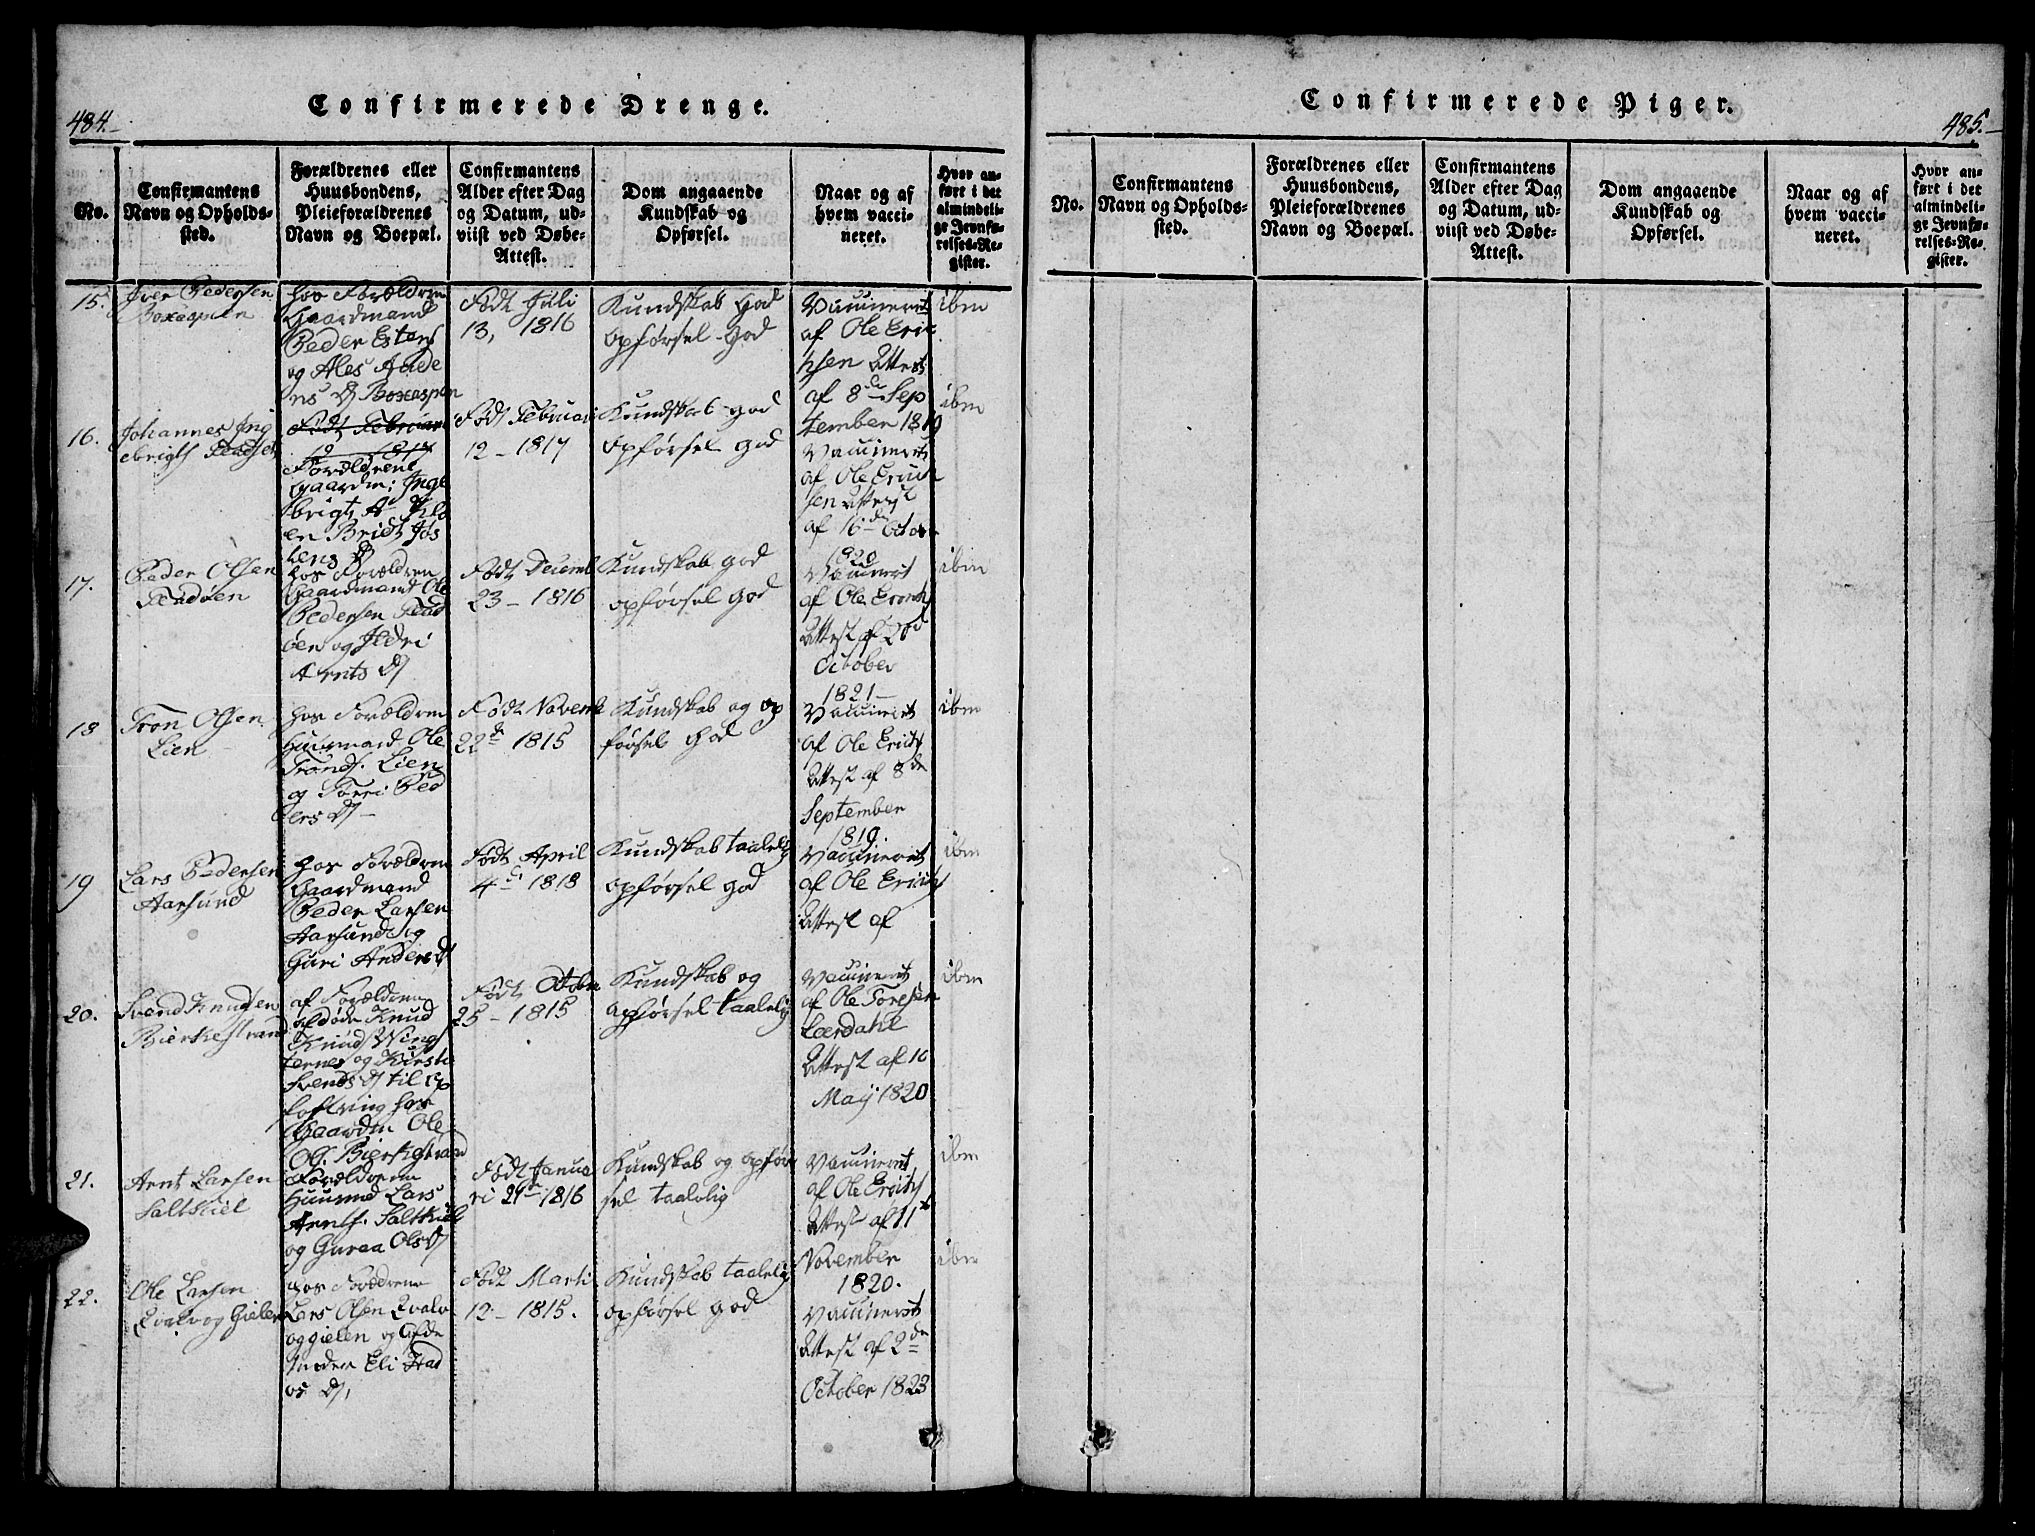 484.
Confirmerede Drenge.
No.
Confirmantens
Navn og Opholds-
sted.
Forældrenes eller
Huusbondens,
Pleieforældrenes
Navn og Boepæl.
Confirmantens
Alder efter Dag
og Datum, ud-
viist ved Døbe-
Attest.
Dom angaaende
Kundskab og
Opførsel.
Naar og af
hvem vacci-
neret.
Hvor an-
ført i det
almindeli-
ge Jevnfø-
relses-Re-
gister.
15.
Iver Pedersen
Boxaspen
hos Forældren
Gaardmand
Peder Esters
og Ales Aade
ns d/ Boxaspen
Født Juli
13, 1816
Kundskab God
opførsel God
Vaccineret
af Ole Eric
hsen Attest
af 8de Sep
tember 1819
ibm
16.
Johannes Ing
ebrigts
Født Februar
12 1817
Forældrene
Gaardm: Inge
brigt
en Bridt Jos
tens d/
Født Februari
12 - 1817
Kundskab god
opførsel God
Vaccineret
af Ole Erich
sen Attest
af 16de Octob
1820
ibm
17.
Peder Olsen
hos Forældren
Gaardmand Ole
Pedersen
øen og Ildri
Arnts d/
Født Decemb
23 - 1816
Kundskab god
opførsel god
Vaccinert
af Ole Erichs
Attest af 2d
October
1821 -
ibm
18
Tron Olsen
Lien
hos Forældren
Huusmand Ole
Tronds. Lien
og Torri Ped
ers d/ -
Født Novemb
22d 1815
Kundskab og op
førsel God
Vaccineret
af Ole Erichs
Attest af 8de
September
1819.
ibm
19
Lars Pedersen
Aarsund
hos Forældren
Gaardmand
Peder Larsen
Aarsund og
Guri Anders d/
Født April
4d 1818
Kundskab taalelig
opførsel god
Vaccineret
af Ole Erichs
Attest af
ibm
20.
Svend Knudsen
Bierkestrand
af Forældrene
afdøde Knud
Knuds
og Kirsti
Svends d/ til op
fostring hos
Gaardm Ole
Ol. Bierkestrand
Født Octobr
25 - 1815
Kundskab og
opførsel taalelig
Vaccineret
af Ole Toresen
Lærdahl
Attest af 10
Maij 1820
ibm
21.
Arnt Larsen
Saltkiel
Forældrene
Huusmd Lars
Arnts. Saltkiel
og Guraa Ols d/
Født Janua
ri 29de 1816
Kundskab og opfør
sel taalelig
Vaccineret
af Ole Erichs
Attest af 11te
November
1820.
ibm
22.
Ole Larsen
Qvalvog Gielen
hos Forældrene
Lars Olsen Qvalv
oggielen og Afdø
Moder Eli Had
os d/,
Født Marti
12 - 1815.
Kundskab taalelig
opførsel god
Vaccineret
Attest af 2de
October 1823
ibm
485.
Confirmerede Piger.
No.
Confirmantens
Navn og Opholds-
sted.
Forældrenes eller
Huusbondens,
Pleieforældrenes
Navn og Boepæl.
Confirmantens
Alder efter Dag
og Datum, ud-
viist ved Døbe-
Attest.
Dom angaaende
Kundskab og
Opførsel.
Naar og af
hvem vacci-
neret.
Hvor an-
ført i det
almindeli-
ge Jevnfø-
relses-Re-
gister.